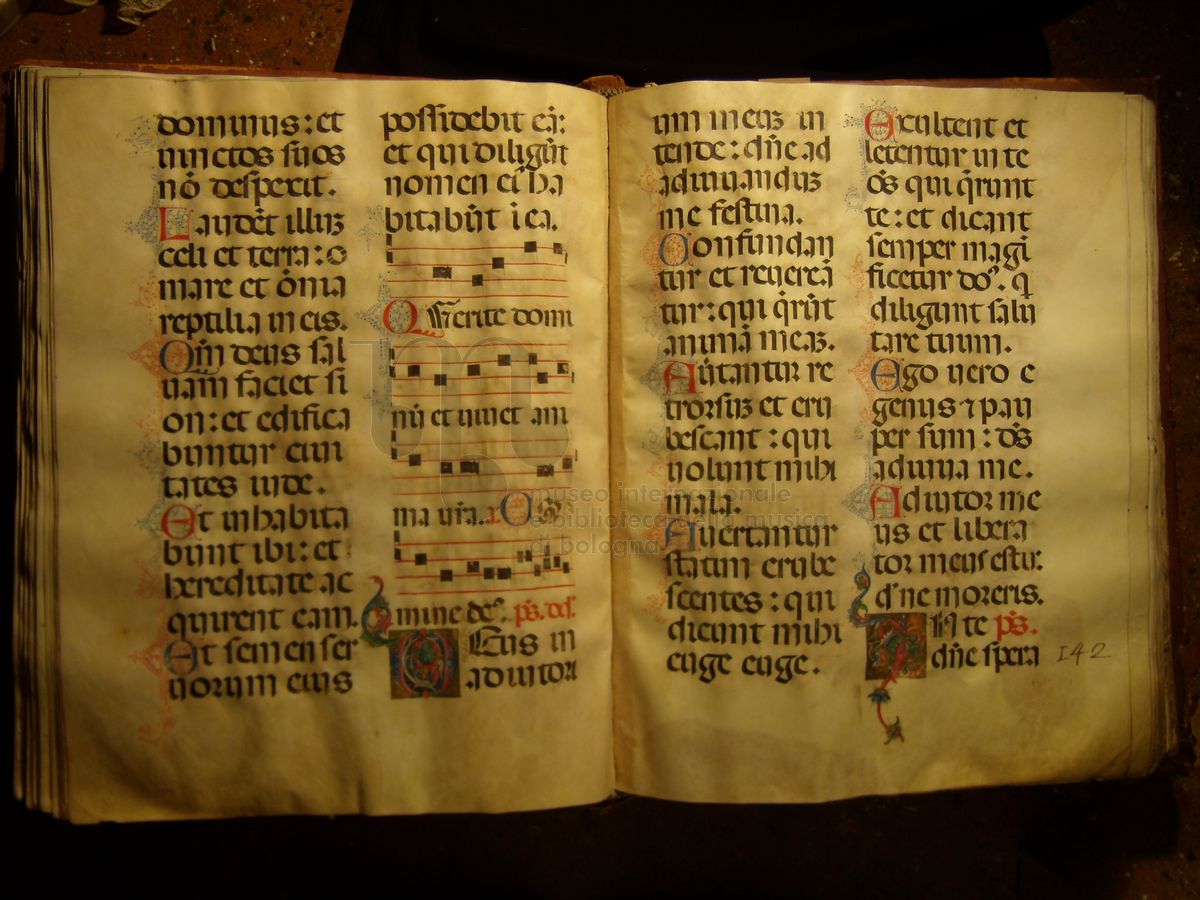 dominus : et
vinctos suos
nō despexit.
Laudēt illuz
celi et terra : o
mare et ōmīa
reptilia in eis.
Qm̄ deus sal
uam faciet si
on : et edifica
buntur ciui
tates iude.
Et inhabita
bunt ibi : et
hereditate ac
quirent eam.
Et semen ser
uorum eius
possidebit eā :
et qui diligūt
nomen eī ha
bitabūt ī ea.
Querite domi
nū et uiuet ani
ma uīa.
mine de⁹. ps. des.
Deus in
adiutori
um meuz in
tende : dn̄e ad
adiuuanduz
me festina.
Confundan
tur et reuereā
tur : qui qr̄ūt
animā meaz.
Auertantur re
trorsuz et eru
bescant : qui
uolunt mihi
mala.
Auertantur
statim erube
scentes : qui
dicunt mihi
euge euge.
Exultent et
letentur in te
oēs qui qr̄unt
te : et dicant
semper magi
ficetur do⁹. q̄
diligunt salu
tare tuum.
Ego uero e
genus ⁊ pau
per sum : d̄s
adiuua me.
Adiutor me
us et libera
tor meus estu.
dn̄e ne moreris.
In te ps.
dn̄e spera
142
museo internazionale
e biblioteca della musica
di bologna